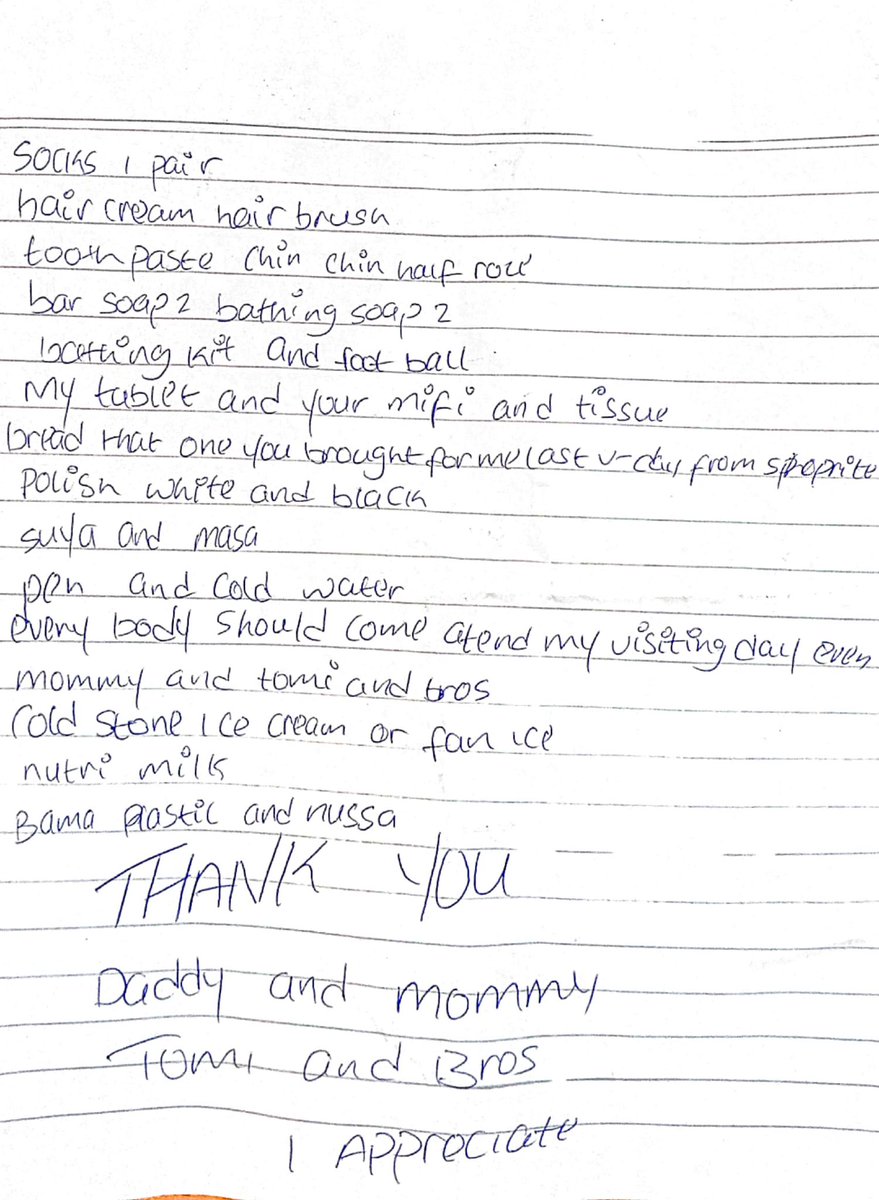 Socks 1 pair
hair cream hair brush
tooth paste chin chin half
bar soap 2 bathing soap 2
bathing kit and foot ball
My tablet and your mifi and tissue
bread that one you brought for me last v-day from
Polish white and black
suya and masa
pen and cold water
every body should come atend my visiting day even
mommy and tomi and bros
Cold stone ice cream or fan ice
nutri milk
Bama plastic and nussa
THANK YOU
Daddy and mommy
Tomi and Bros
I Appreciate